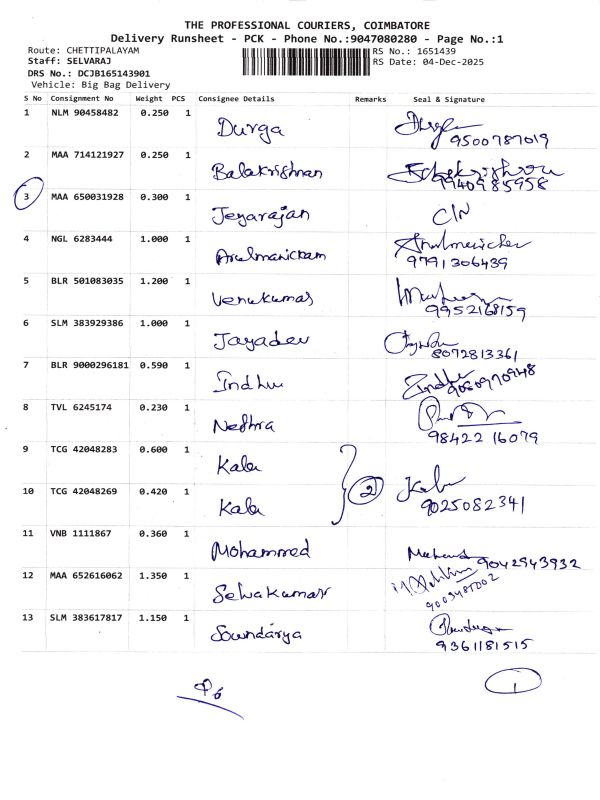 THE PROFESSIONAL COURIERS, COIMBATORE
Delivery Runsheet - PCK - Phone No.:9047080280 - Page No.:1
Route: CHETTIPALAYAM
Staff: SELVARAJ
DRS No.: DCJB165143901
Vehicle: Big Bag Delivery
RS No.: 1651439
RS Date: 04-Dec-2025
S No Consignment No Weight PCS Consignee Details Remarks Seal & Signature
1 NLM 90458482 0.250 1 Durga
9500787019
2 MAA 714121927 0.250 1 Balakrishnan
9940985958
3 MAA 650031928 0.300 1 Jeyarajan C/N
4 NGL 6283444 1.000 1 Arulmanickam Arulmanickam
9791306439
5 BLR 501083035 1.200 1 Venukumar
9952168159
6 SLM 383929386 1.000 1 Jayadev
8072813361
7 BLR 9000296181 0.590 1 Indhu Indhu
8 TVL 6245174 0.230 1 Nethra
98422 16079
9 TCG 42048283 0.600 1 Kala
2 Kala
10 TCG 42048269 0.420 1 Kala 9025082341
11 VNB 1111867 0.360 1 Mohammed 9042943932
12 MAA 652616062 1.350 1 Selvakumar
13 SLM 383617817 1.150 1 Soundarya
9361181515
1